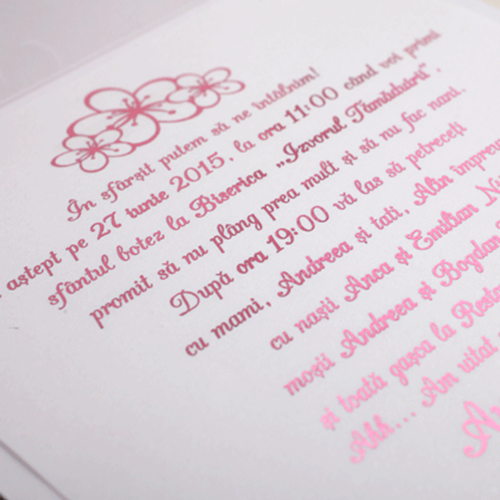 În sfârșit putem să ne întâlnim!
aștept pe 27 iunie 2015, la ora 11:00 când voi primi
sfântul botez la Biserica „Izvorul Tămăduirii".
promit să nu plâng prea mult și să nu fac nani.
După ora 19:00 vă las să petreceți
cu mami, Andreea și tati, Alin împreu
cu nașii Anca și Emilian
moșii Andreea și Bogdan
și toată gașca la
Ahh... Am uitat